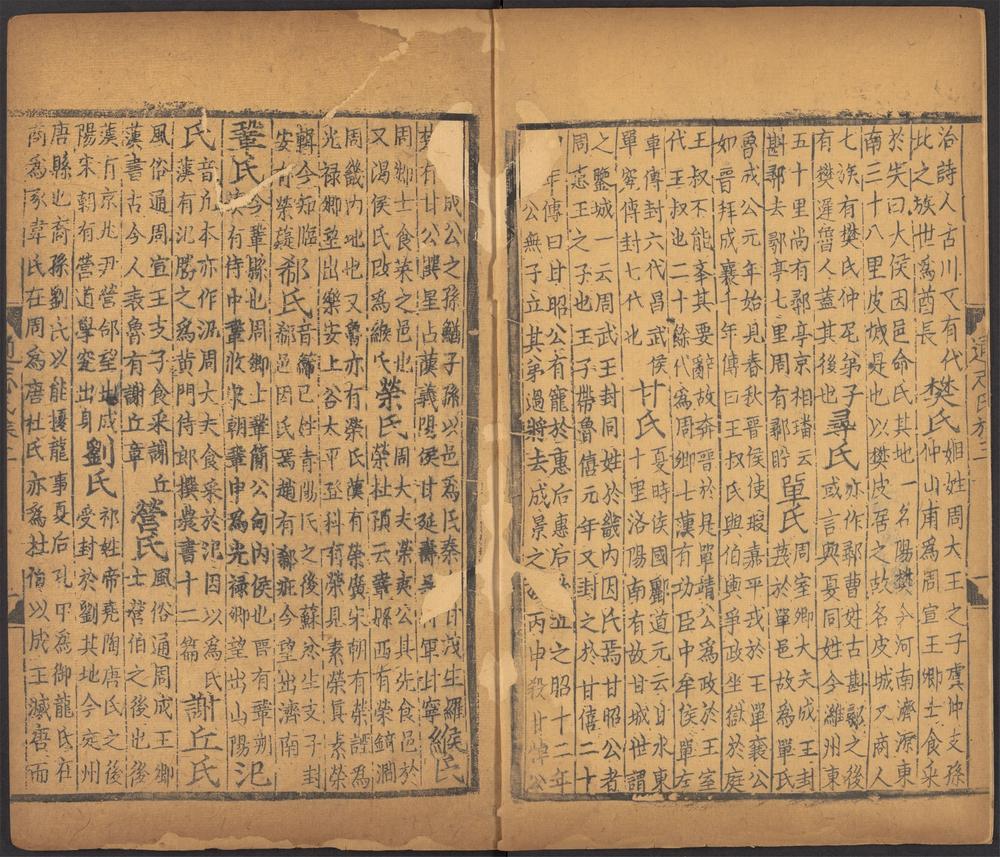 洽詩人古川又有代
此之族世爲酋長樊氏姬姓周大王之子虞仲支孫
於矢曰大侯因邑命氏其地一名陽樊今河南濟源東
南三十八里皮城是也以樊皮居之故名皮城又商人
七族有樊氏仲尼弟子尋氏亦作鄩曹姓古斟鄩之後
有樊遲魯人蓋其後也或言與夏同姓今濰州東
五十里尚有鄩亭京相璠云今
斟鄩去鄩亭七里周有鄩肸單氏周室卿大夫成王封
蔑於單邑故爲單氏
魯成公元年始見春秋晉侯使瑕嘉平戎於王單襄公
如晉拜成襄十年傳曰王叔氏與伯輿爭政坐獄於庭
王叔不能奉其要辭故奔晉於是單靖公爲政於王室
代王叔也二十餘代爲周卿士漢有功臣中牟侯單左
車傳封六代昌武侯甘氏夏時侯國酈道元云甘水東
單究傳封七代也十里洛陽南有故甘城世謂
之鑒城一云周武王封同姓於畿內因氏焉甘昭公者
周惠王之子也王子帶魯僖元年又封之於甘僖二十
年傳曰甘昭公有寵於惠后惠后立之昭十二年
公無子立其弟過將去成景之丙申殺甘悼公
成公之孫鰌子孫以邑爲氏秦甘茂生羅緱氏
楚有甘公善星占漢義陽侯甘延壽吳將軍甘寧
周卿士食菜之邑也榮氏周大夫榮夷公其先食邑於
又渴侯氏改爲緱氏榮杜預云鞏縣西有榮錡澗
周畿內地也又魯亦有榮氏漢有榮廣宋朝有榮諲爲
光祿卿望出樂安上谷大平登科有榮見素榮眞素榮
輯今知臨邛希氏音郗已姓青陽氏之後蘇忿生支子封
安有榮嶷郗邑因氏焉趙有郗疵今望出濟南
鞏氏今鞏縣也周卿士鞏簡公甸內侯也晉有鞏朔
漢有侍中鞏攸宋朝鞏申爲光祿卿望出山陽氾
氏音凡本亦作汎周大夫食采於氾因以爲氏
漢有氾勝之爲黃門侍郎撰農書十二篇謝丘氏
風俗通周宣王支子食采謝丘營氏風俗通周成王卿
漢書古今人表魯有謝丘章士營伯之後也後
漢有京兆尹營郃望出成劉氏祁姓帝堯陶唐氏之後
陽宋朝有營道學究出身受封於劉其地今定州
唐縣也裔孫劉氏以能擾龍事夏后孔甲爲御龍氏在
商爲豕韋氏在周爲唐杜氏亦爲杜伯以成王滅唐而